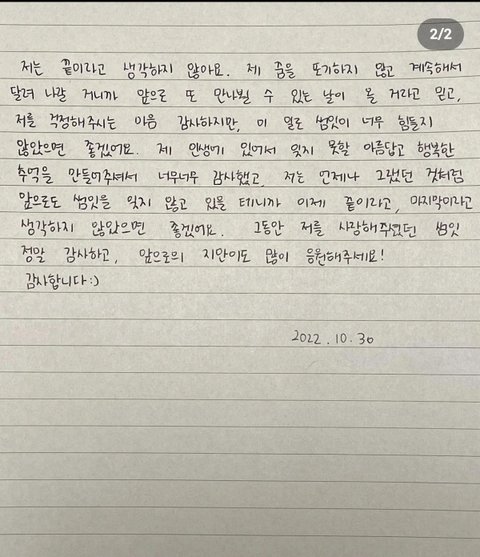 2/2
저는 끝이라고 생각하지 않아요. 제 꿈을 포기하지 않고 계속해서
달려 나갈 거니까 앞으로 또 만나뵐 수 있는 날이 올 거라고 믿고,
저를 걱정해주시는 마음 감사하지만, 이 일로 썸잇이 너무 힘들지
않았으면 좋겠어요. 제 인생에 있어서 잊지 못할 아름답고 행복한
추억을 만들어주셔서 너무너무 감사했고, 저는 언제나 그랬던 것처럼
앞으로도 썸잇을 잊지 않고 있을 테니까 이제 끝이라고, 마지막이라고
생각하지 않았으면 좋겠어요. 그동안 저를 사랑해주셨던 썸잇
정말 감사하고, 앞으로의 지안이도 많이 응원해주세요!
감사합니다:)
2022.10.30